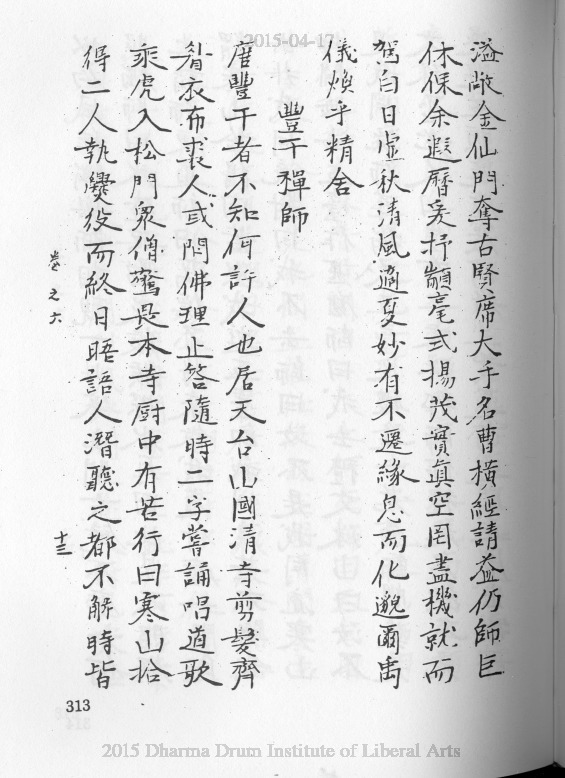 2015-04-17
溢敞金仙門奪古賢席大手名曹橫經請益仍師巨
休保余遐曆爰抒顓毫式揚茂實真空罔盡機就而
駕白日虛秋清風適夏妙有不遷緣息而化邈爾禹
儀煥乎精舍
豐干禪師
唐豐干者不知何許人也居天台山國清寺剪髮齊
眉衣布裘人或問佛理止答隨時二字嘗誦唱道歌
乘虎入松門眾僧驚畏本寺厨中有苦行曰寒山拾
得二人執爨役而終日晤語人潛聽之都不解時皆
卷之六 十三
313
2015 Dharma Drum Institute of Liberal Arts